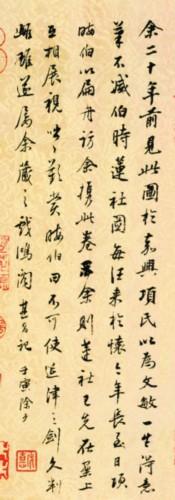 余二十年前見此圖於嘉興項氏以為文敏一生得意
筆不減伯時蓮社圖每往來於懷今年長至日項
晦伯以扁舟訪余攜此卷示余則蓮社已先在案上
互相展視咄咄歎賞晦伯曰不可使延津之劍久判
雌雄遂屬余藏之戲鴻閣其昌記 壬寅除夕